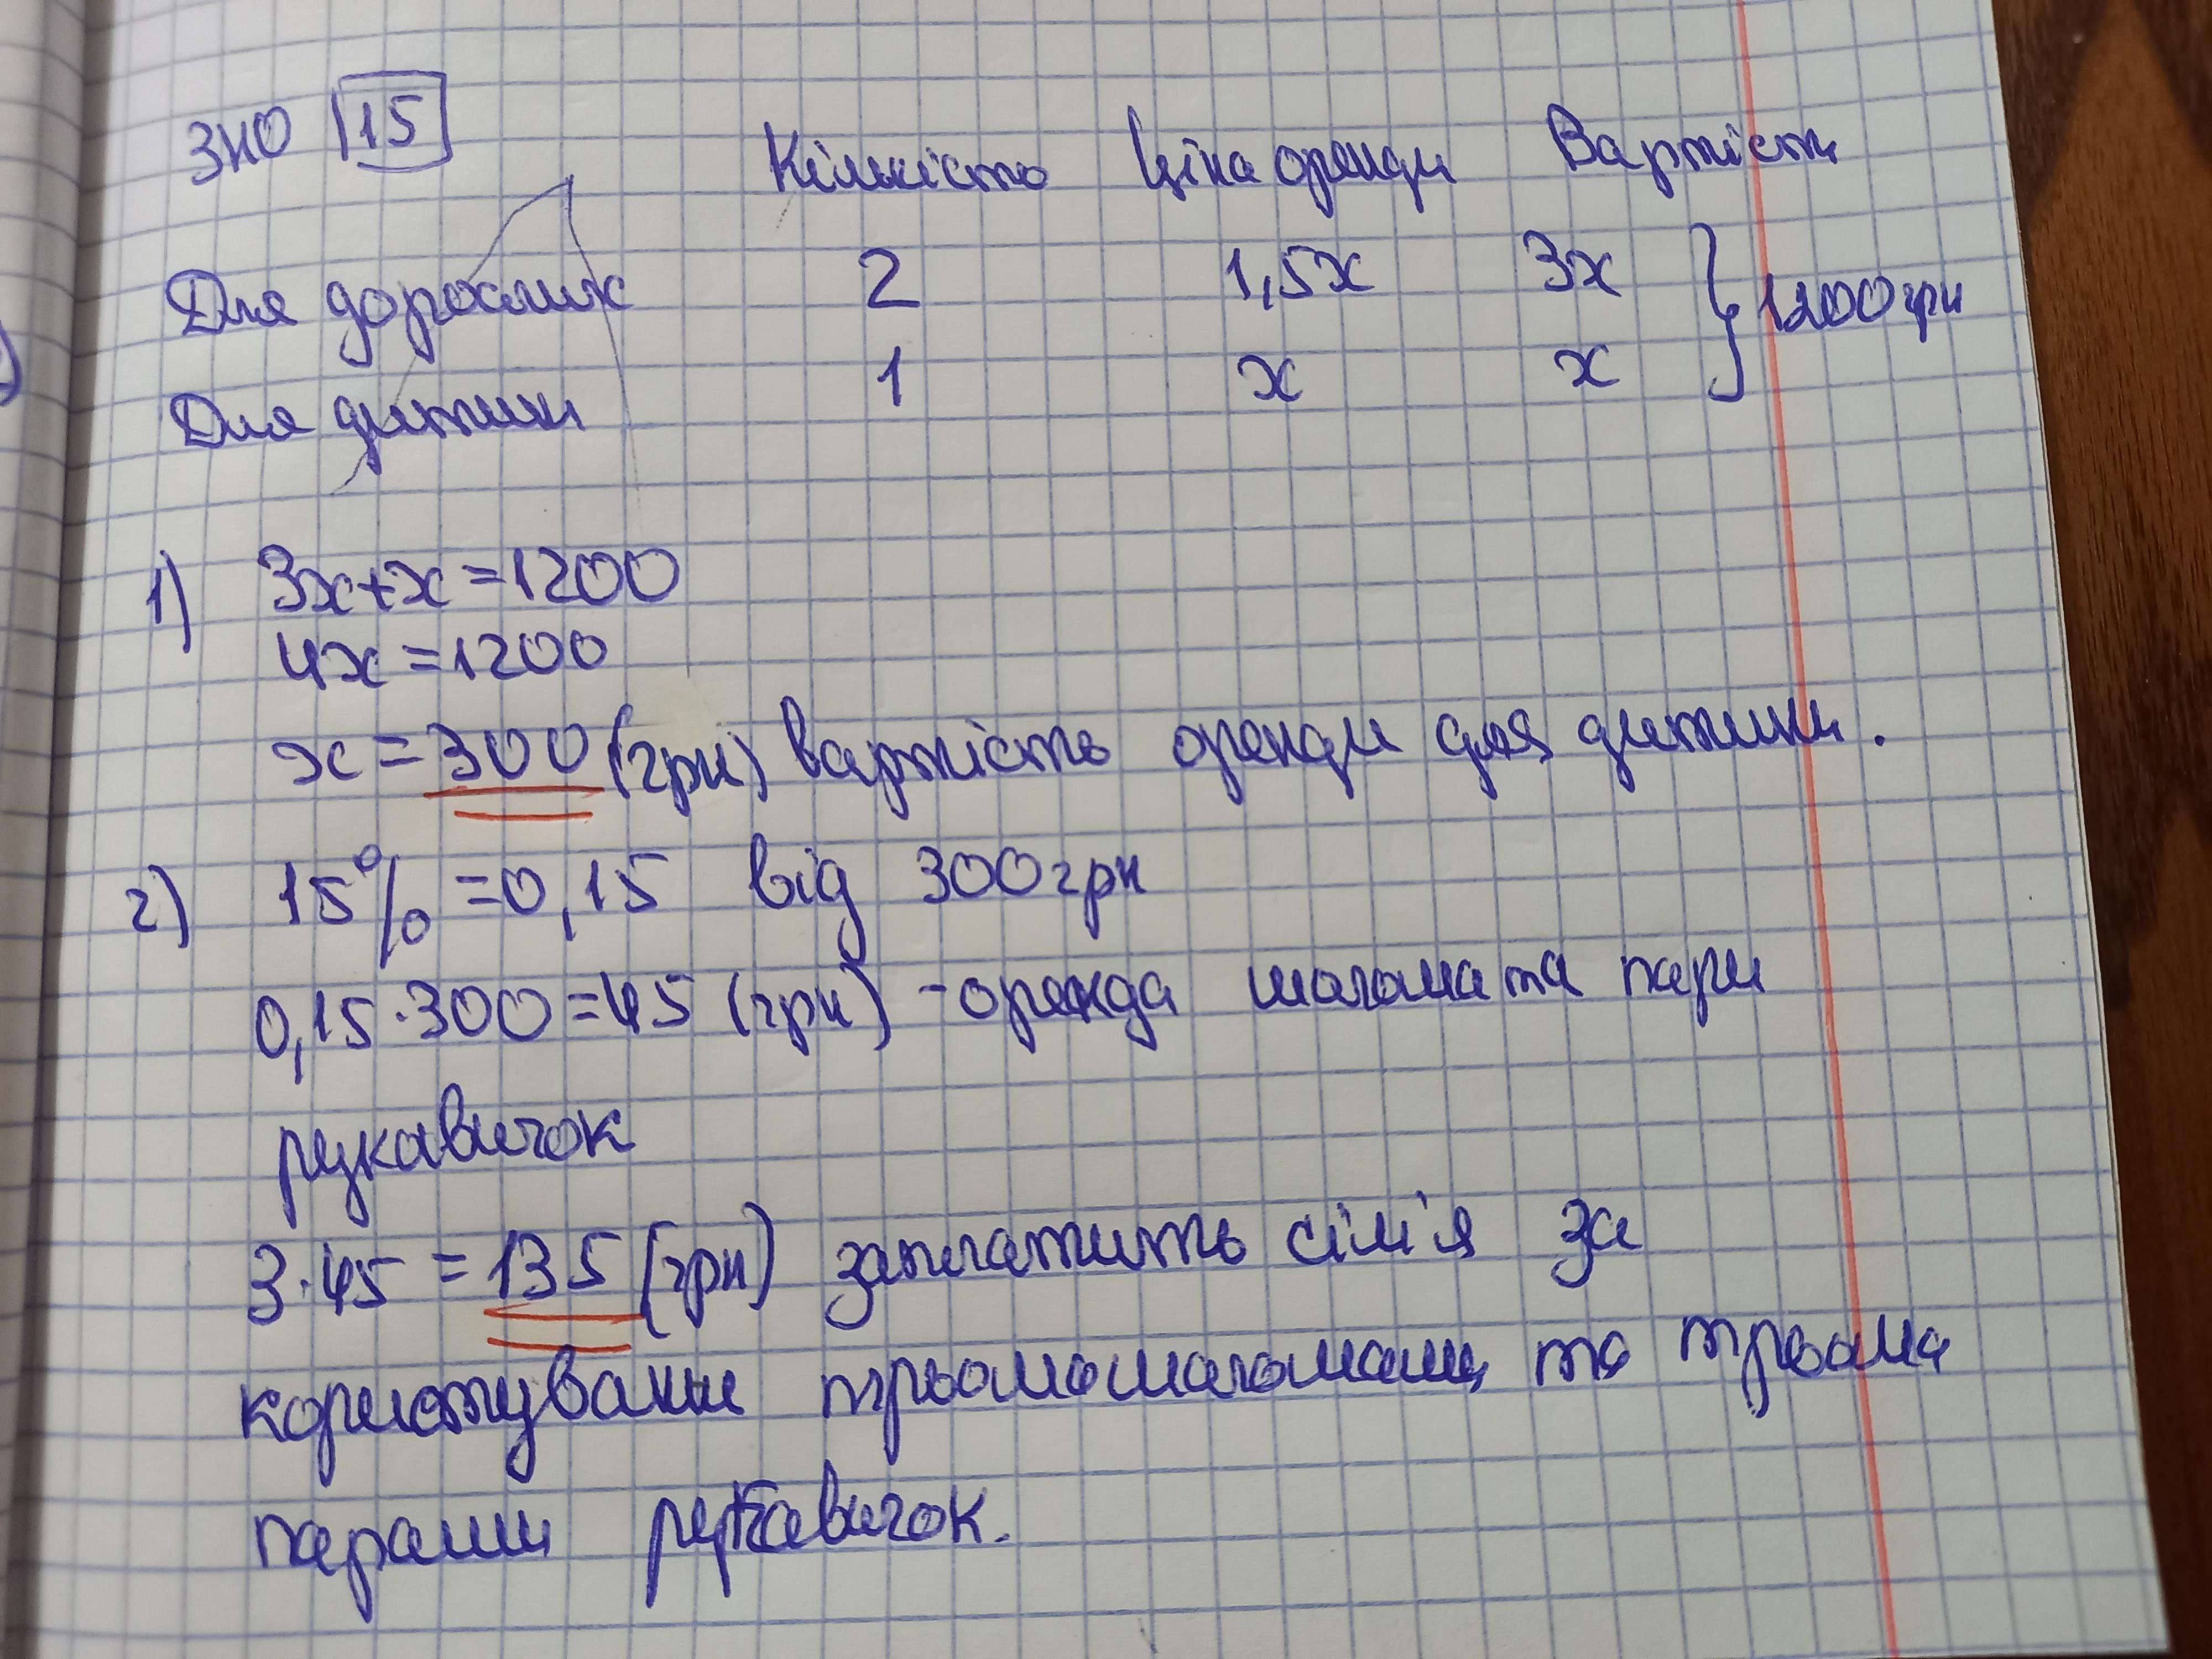 ЗНО 15
Кількість Ціна оренди Вартість
Для дорослих 2 1,5x 3x } 1200 грн
Для дитини 1 x x
1) 3x+x=1200
4x=1200
x=300 (грн) вартість оренди для дитини.
2) 15% =0,15 від 300 грн
0,15·300=45 (грн) - оренда шолома та пари
рукавичок
3·45 = 135 (грн) заплатить сім'я за
користування трьома шоломами та трьома
парами рукавичок.